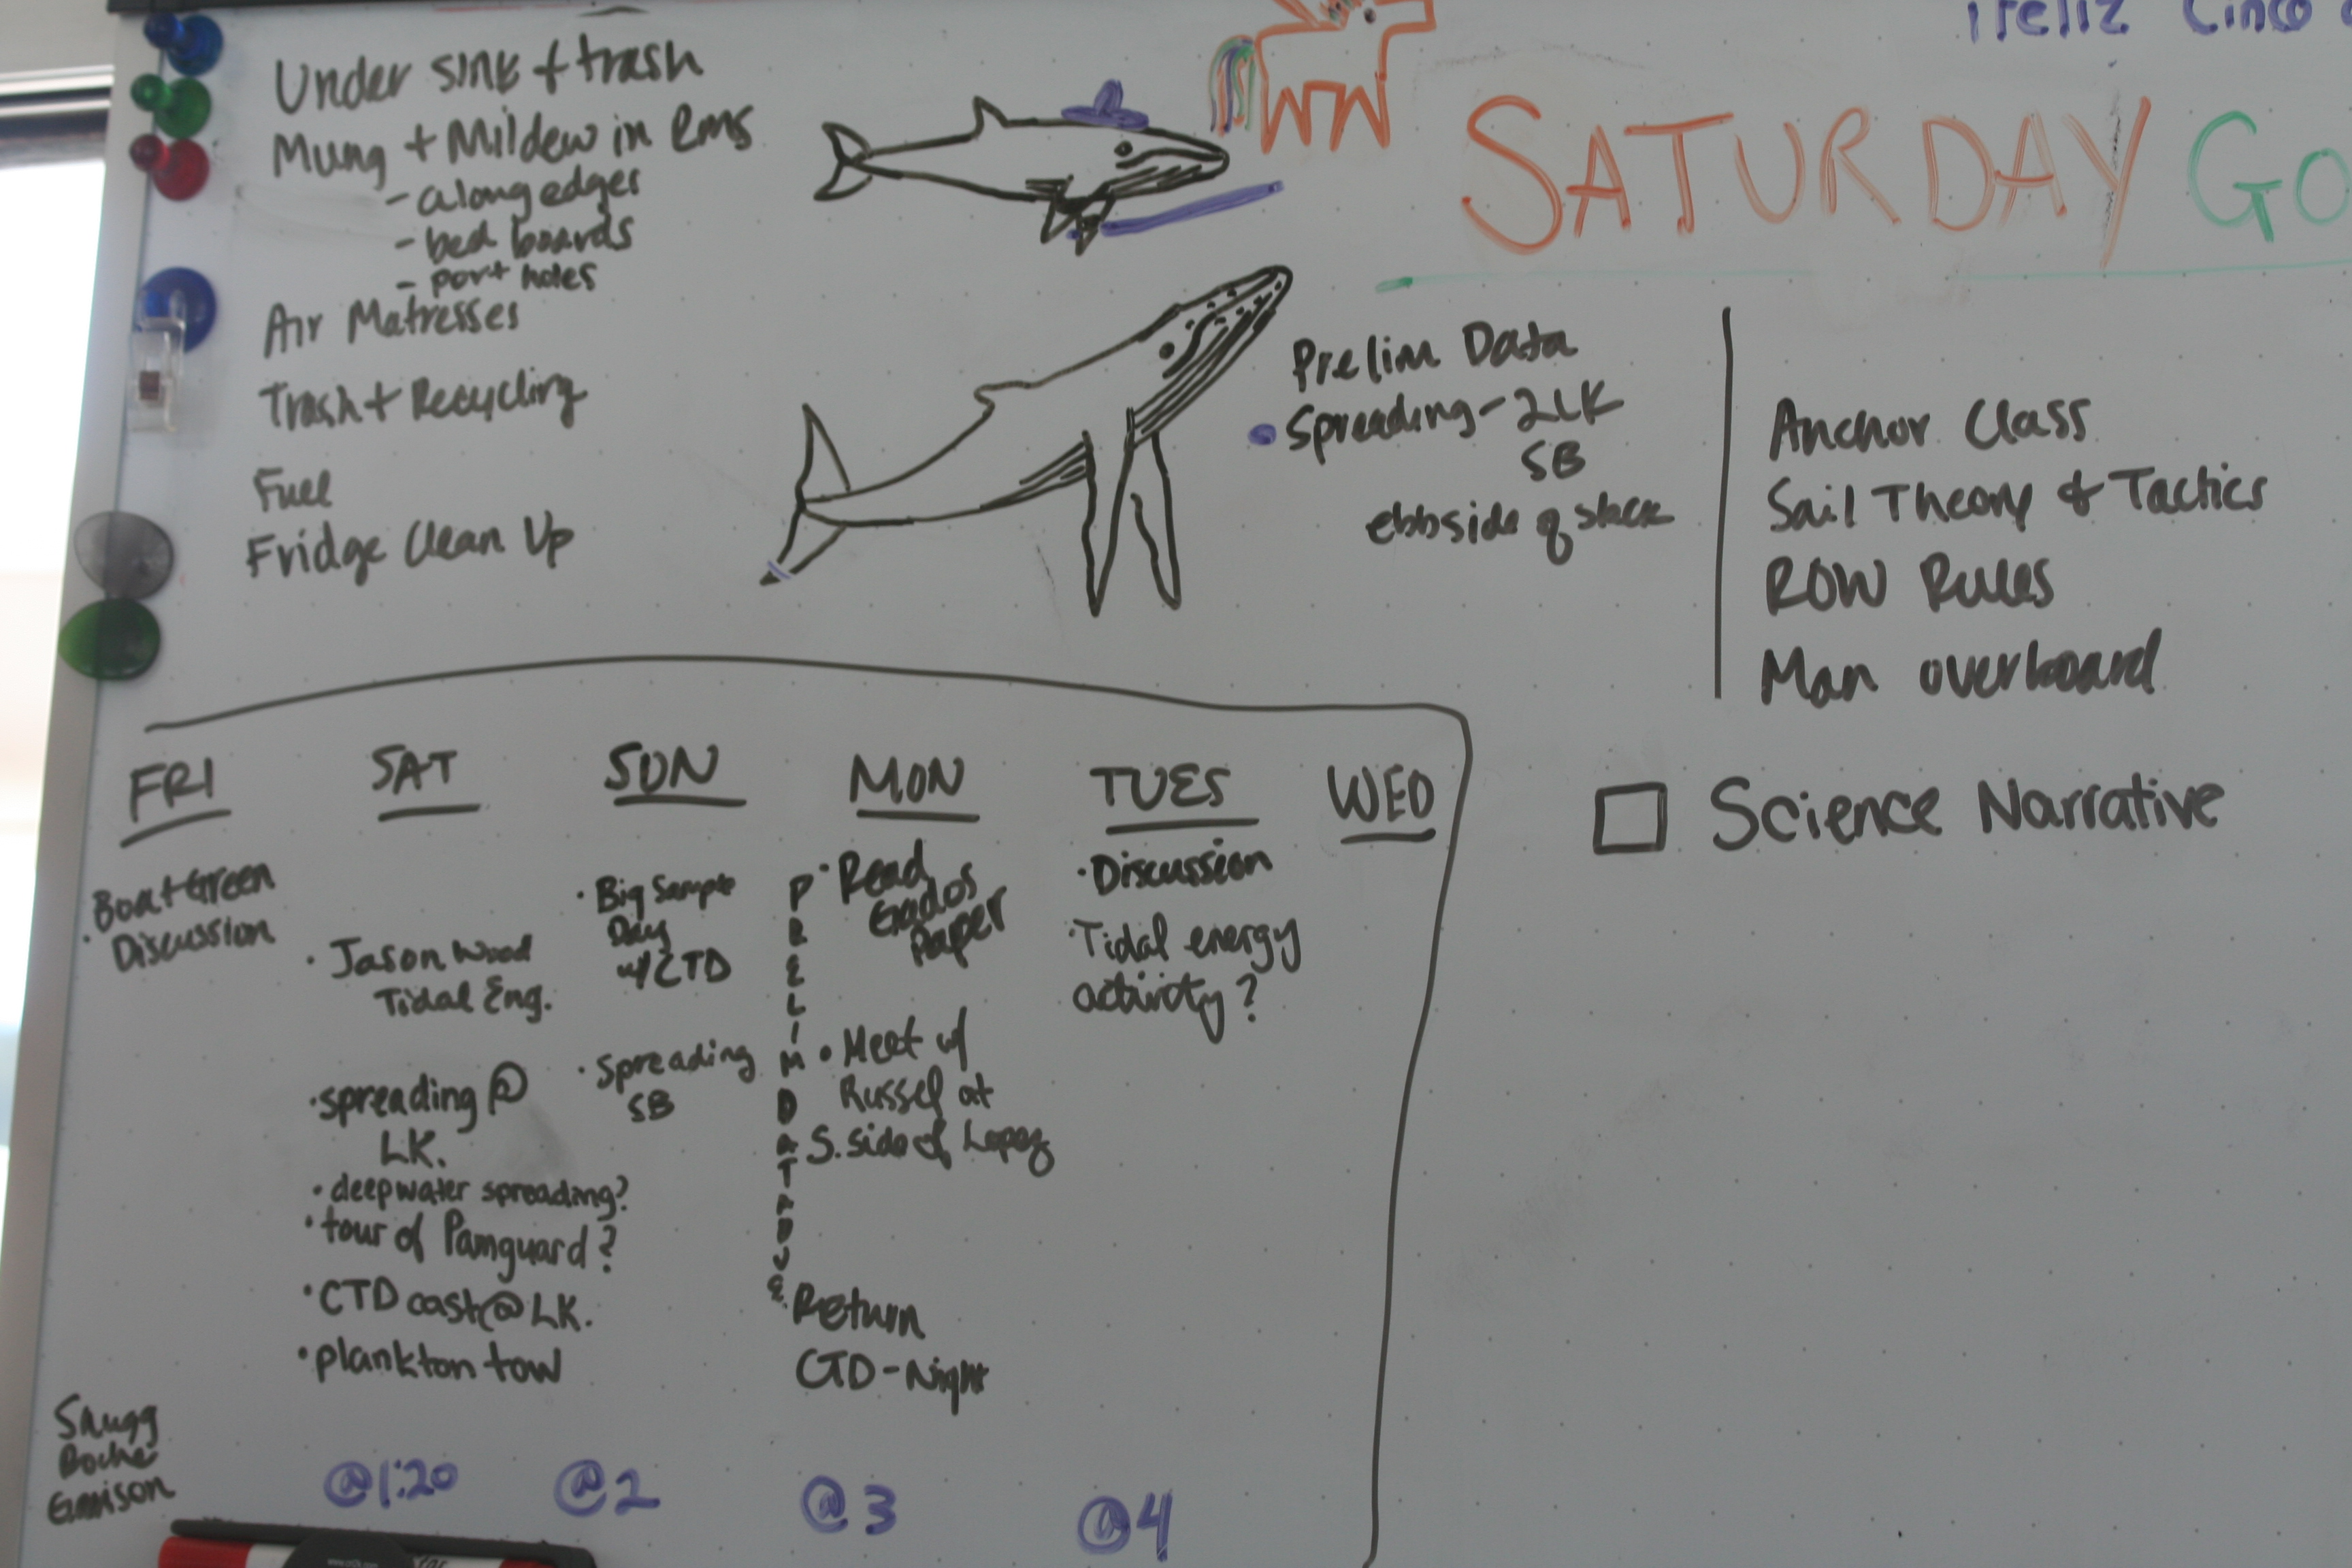 Under sink + trash
Mung + Mildew in Rms
- along edges
- bed boards
- port holes
Air Matresses
Trash + Recycling
Fuel
Fridge Clean Up
¡Feliz Cinco
SATURDAY GO
Prelim Data
Spreading - 2 LK
SB
ebbside of slack
Anchor Class
Sail Theory & Tactics
ROW Rules
Man overboard
Science Narrative
FRI
· Boat Green
Discussion
Snugg
Roche
SAT
· Jason Wood
Tidal Eng.
· spreading @
LK.
· deepwater spreading?
· tour of Pamguard?
· CTD cast @ LK.
· plankton tow
@1:20
SUN
· Big Sample
Day
w/ CTD
· Spreading
SB
@2
PRELIM DATA DUE
MON
· Read
Paper
· Meet w/
Russel at
S. side of Lopez
Return
CTD - Night
@3
TUES
· Discussion
· Tidal energy
activity?
@4
WED